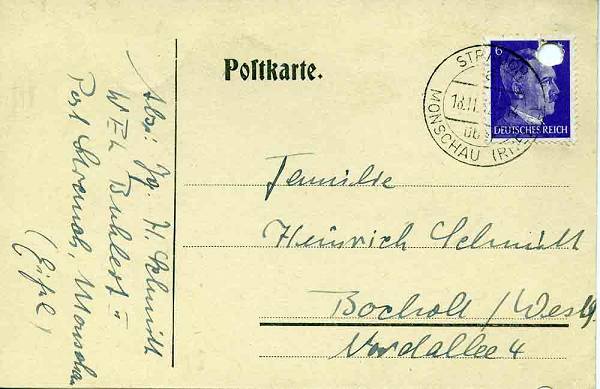 Postkarte.
6
DEUTSCHES REICH
MONSCHAU
Familie
Heinrich Schmidt
Bocholt / Westf.
Nordallee 4
Abs: Jg. H. Schmidt
W E L
Post Strauch, Monschau
(Eifel)